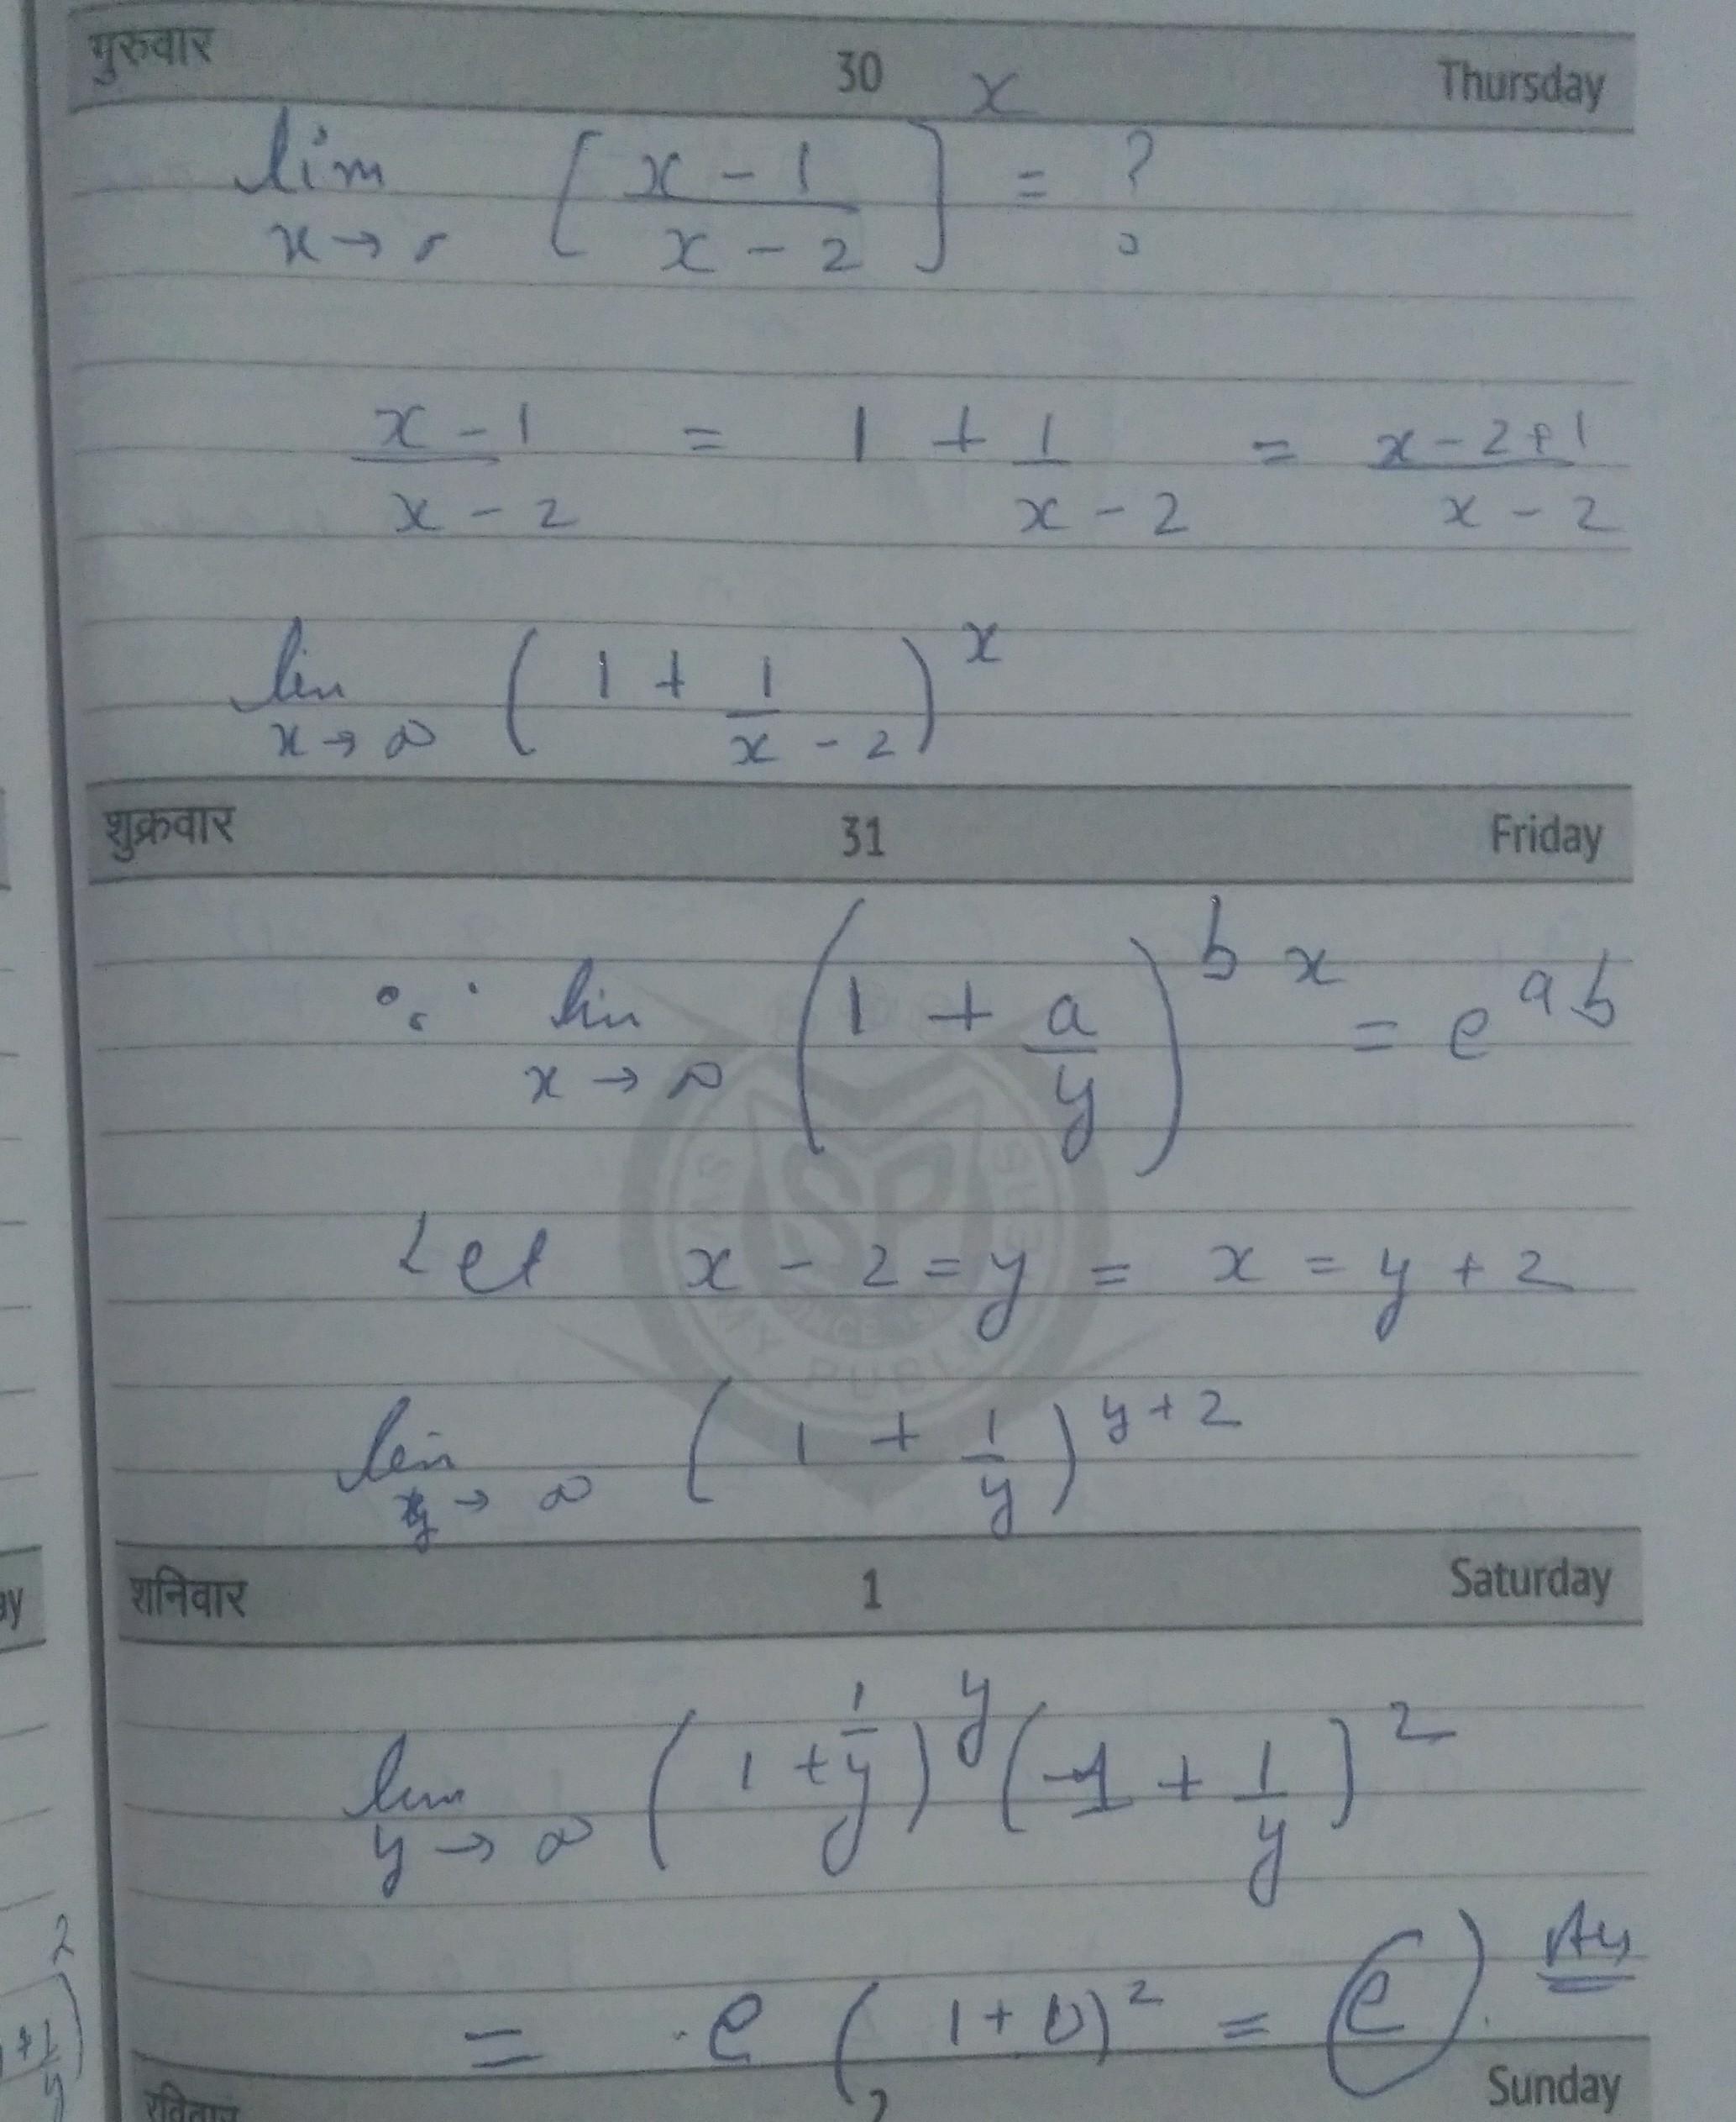 गुरुवार 30 Thursday
lim x → [x - 1 / x - 2]^x = ?
x - 1 / x - 2 = 1 + 1 / x - 2 = x - 2 + 1 / x - 2
lim x → ∞ (1 + 1 / x - 2)^x
शुक्रवार 31 Friday
∵ lim x → ∞ (1 + a / y)^b x = e^ab
Let x - 2 = y = x = y + 2
lim y → ∞ (1 + 1 / y)^y + 2
शनिवार 1 Saturday
lim y → ∞ (1 + 1 / y)^y (1 + 1 / y)^2
= e (1 + 0)^2 = (e). Ans
रविवार Sunday